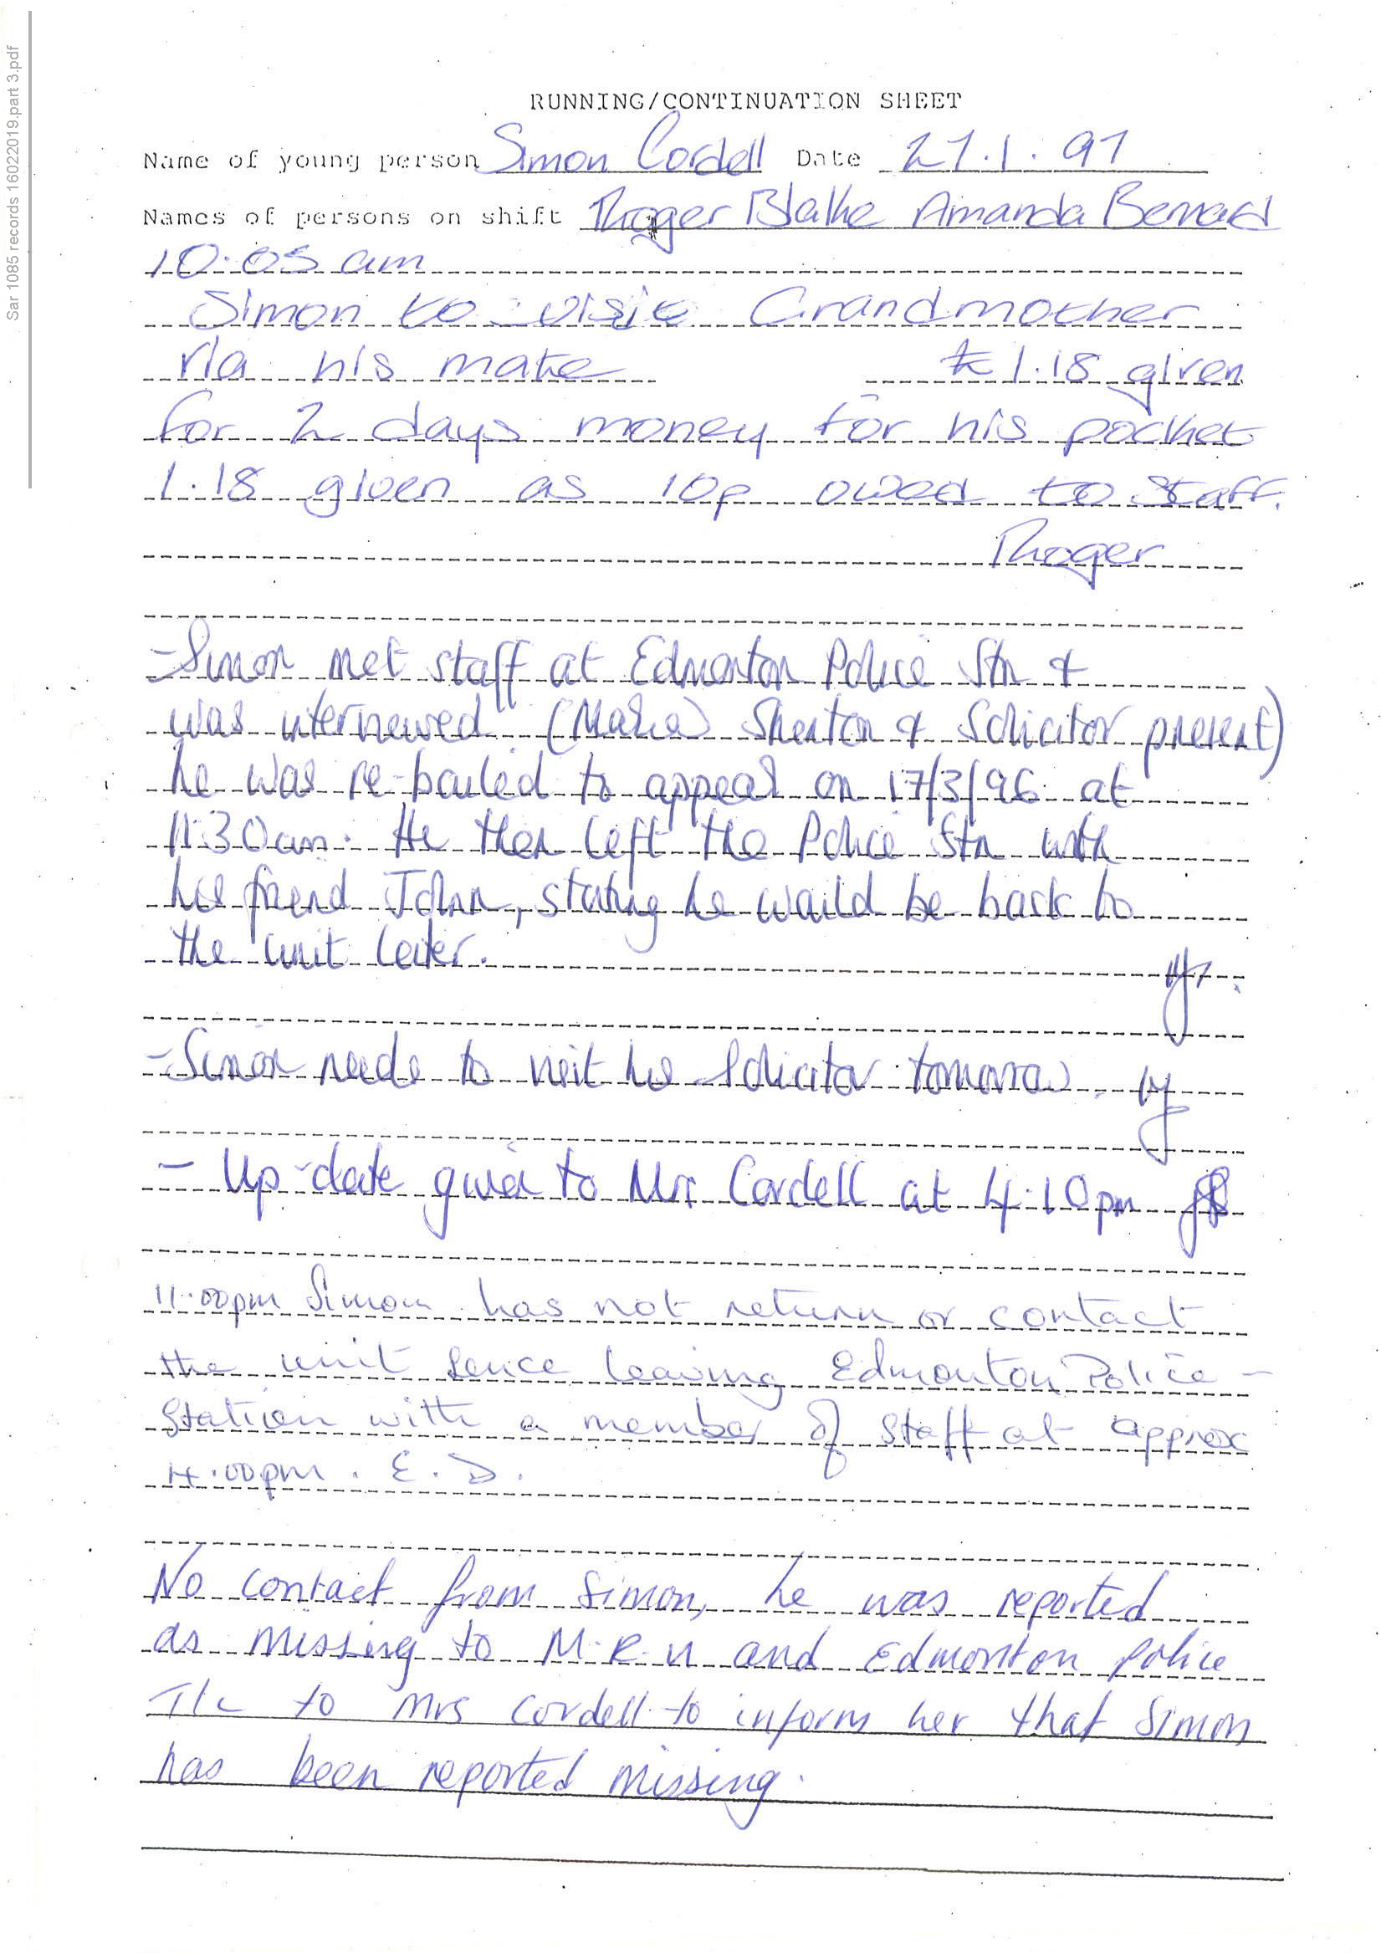 Sar 1085 records 16022019.part 3.pdf
RUNNING/CONTINUATION SHEET
Name of young person Simon Cordell Date 27.1.97
Names of persons on shift Roger Blake Amanda Bernard
10.05 am
Simon to visit Grandmother
via his mate £1.18 given
for 2 days money for his pocket
1.18 given as 10p owed to Staff.
Roger
- Simon met staff at Edmonton Police Stn &
was interviewed (Maria) Shenton & Solicitor present)
he was re-bailed to appeal on 17/3/96 at
11:30am. He then left the Police Stn with
his friend John, stating he would be back to
the unit later.
- Simon needs to visit his Solicitor tomorrow.
- Up-date given to Mrs Cordell at 4.10pm
11.00pm Simon has not return or contact
the unit sence leaving Edmonton Police -
Station with a member of staff at approx
4.00pm. E.D.
No contact from Simon, he was reported
as missing to M.R.U and Edmonton police
T/c to Mrs Cordell to inform her that Simon
has been reported missing.